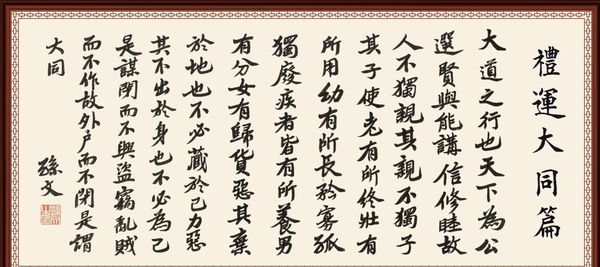 禮運大同篇
大道之行也天下為公
選賢與能講信修睦故
人不獨親其親不獨子
其子使老有所終壯有
所用幼有所長矜寡孤
獨廢疾者皆有所養男
有分女有歸貨惡其棄
於地也不必藏於己力惡
其不出於身也不必為己
是謀閉而不興盜竊亂賊
而不作故外戶而不閉是謂
大同
孫文